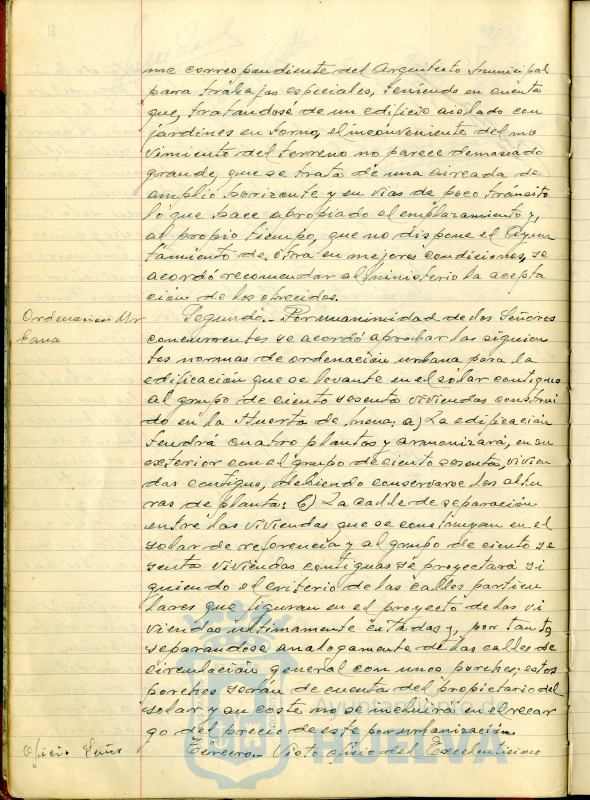 me correspondiente del Arquitecto Municipal
para trabajos especiales, teniendo en cuenta
que, tratandose de un edificio aislado con
jardines en torno, el inconveniente del mo
vimiento del terreno no parece demasiado
grande, que se trata de una aireada de
amplio horizonte y en vias de poco tránsito
lo que hace apropiado el emplazamiento y,
al propio tiempo, que no dispone el Ayun
tamiento de otra en mejores condiciones, se
acordó recomendar al Ministerio la acepta
cion de los ofrecidos.
Ordenacion Ur
bana
Segundo.- Por unanimidad de los Señores
concurrentes se acordó aprobar las siguien
tes normas de ordenación urbana para la
edificación que se levante en el solar contiguo
al grupo de ciento sesenta viviendas construi
do en la Huerta de Mena: a) La edificación
tendrá cuatro plantas y armonizará, en su
exterior con el grupo de ciento sesenta, vivien
das contiguo, debiendo conservarse las altu
ras de planta: b) La calle de separación
entre las viviendas que se construyan en el
solar de referencia y al grupo de ciento se
senta viviendas contiguas se proyectará si
guiendo el criterio de las calles particu
lares que figuran en el proyecto de las vi
viendas ultimamente citadas y, por tanto
separandose analogamente de las calles de
circulación general con unos porches; estos
porches serán de cuenta del propietario del
solar y su coste no se incluirá en el recar
go del precio de este por urbanización.
Oficio
Tercero.- Visto oficio del Excelentisimo
HUELVA